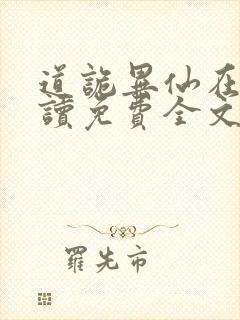 道詭異仙在
讀免費全文
羅先市